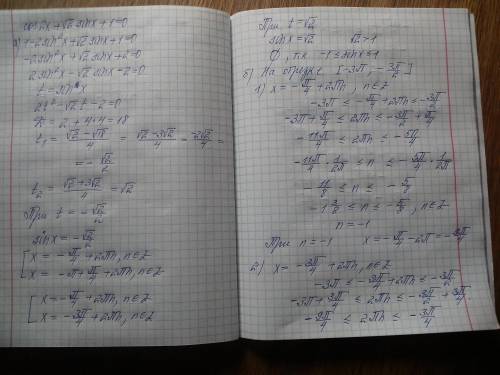 cos2x+√2 sinx+1=0
а) 1-2sin²x+√2 sinx+1=0
-2sin²x+√2 sinx+2=0
2sin²x-√2 sinx-2=0
t=sinx
2t²-√2t-2=0
D=2+4·4=18
t₁=(√2-√18)/4=(√2-3√2)/4=-2√2/4=
=-√2/2
t₂=(√2+3√2)/4=√2
При t=-√2/2
sinx=-√2/2
[x=-π/4+2πn, n∈Z
[x=-π+π/4+2πn, n∈Z
[x=-π/4+2πn, n∈Z
[x=-3π/4+2πn, n∈Z
При t=√2
sinx=√2 √2>1
∅, т.к. -1≤sinx≤1
б) На отрезке [-3π; -3π/2]
1) x=-π/4+2πn, n∈Z
-3π≤-π/4+2πn≤-3π/2
-3π+π/4≤2πn≤-3π/2+π/4
-11π/4≤2πn≤-5π/4
-11π/4·1/2π≤n≤-5π/4·1/2π
-11/8≤n≤-5/8
-1 3/8≤n≤-5/8, n∈Z
n=-1
При n=-1 x=-π/4-2π=-9π/4
2) x=-3π/4+2πn, n∈Z
-3π≤-3π/4+2πn≤-3π/2
-3π+3π/4≤2πn≤-3π/2+3π/4
-9π/4≤2πn≤-3π/4